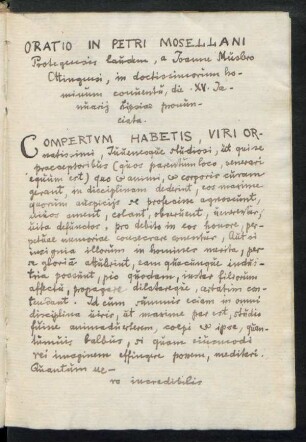 ORATIO IN PETRI MOSELLANI
Protegensis laudem, a Ioanne Muslero
Ottingensi, in doctissimorum ho-
minum conventu, die XV. Ia-
nuarij Lipsiae pronun-
ciata.
COMPERTVM HABETIS, VIRI OR-
natissimi, Iuuenesque studiosi, ut qui se
praeceptoribus (quos parentum loco, venerari
aequum est) quo & animi, & corporis curam
gerant, in disciplinam dederint, eos maxime
quorum auspicijs se profecisse agnoscunt,
vivos ament, colant, observent, venerentur,
vita defunctos, pro debito in eos honore, per-
petuae memoriae consecrare conentur, Aut si
insignia illorum in homines merita, per-
se gloriam attulerint, eam quacunque indu-
stria possunt, pio quodam, instar filiorum
affectu, propagare dilatareque, certatim con-
tendant. Id cum summis etiam in omni
disciplina viris, ut maxime par est, studio
fuisse animadverterem, coepi & ipse, quan-
tumuis balbus, si quam eiusmodi
rei imaginem effingere possem, meditari.
Quantum ve-
ro incredibilis